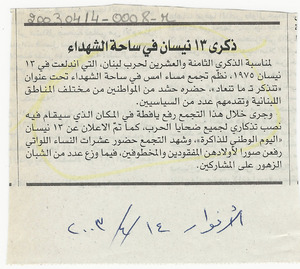 20030414-0008-M
ذكرى ١٣ نيسان في ساحة الشهداء
لمناسبة الذكرى الثامنة والعشرين لحرب لبنان، التي اندلعت في ١٣
نيسان ١٩٧٥، نظم تجمع مساء امس في ساحة الشهداء تحت عنوان
«تتذكر تـ ما تنعاد»، حضره حشد من المواطنين من مختلف المناطق
اللبنانية وتقدمهم عدد من السياسيين.
وجرى خلال هذا التجمع رفع يافطة في المكان الذي سيقام فيه
نصب تذكاري لجميع ضحايا الحرب، كما تمّ الاعلان عن ١٣ نيسان
«اليوم الوطني للذاكرة»، وشهد التجمع حضور عشرات النساء اللواتي
رفعن صوراً لأولادهن المفقودين والمخطوفين، فيما وزع عدد من الشبان
الزهور على المشاركين.
الأنوار ١٤/٤/٢٠٠٣